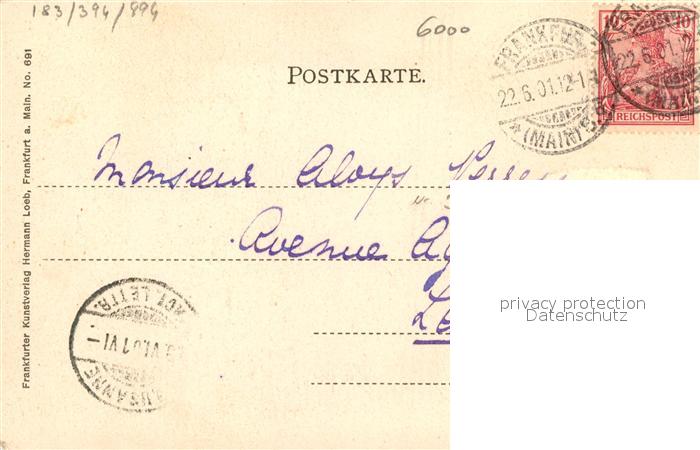 183/394/894
6000
10 10
REICHSPOST
FRANKFURT
22.6.01.12-1
*(MAIN)
POSTKARTE.
Monsieur Aloys
Avenue
Frankfurter Kunstverlag Hermann Loeb, Frankfurt a. Main. No. 691
LETTR.
VI.01 VI-
LAUSANNE
privacy protection
Datenschutz